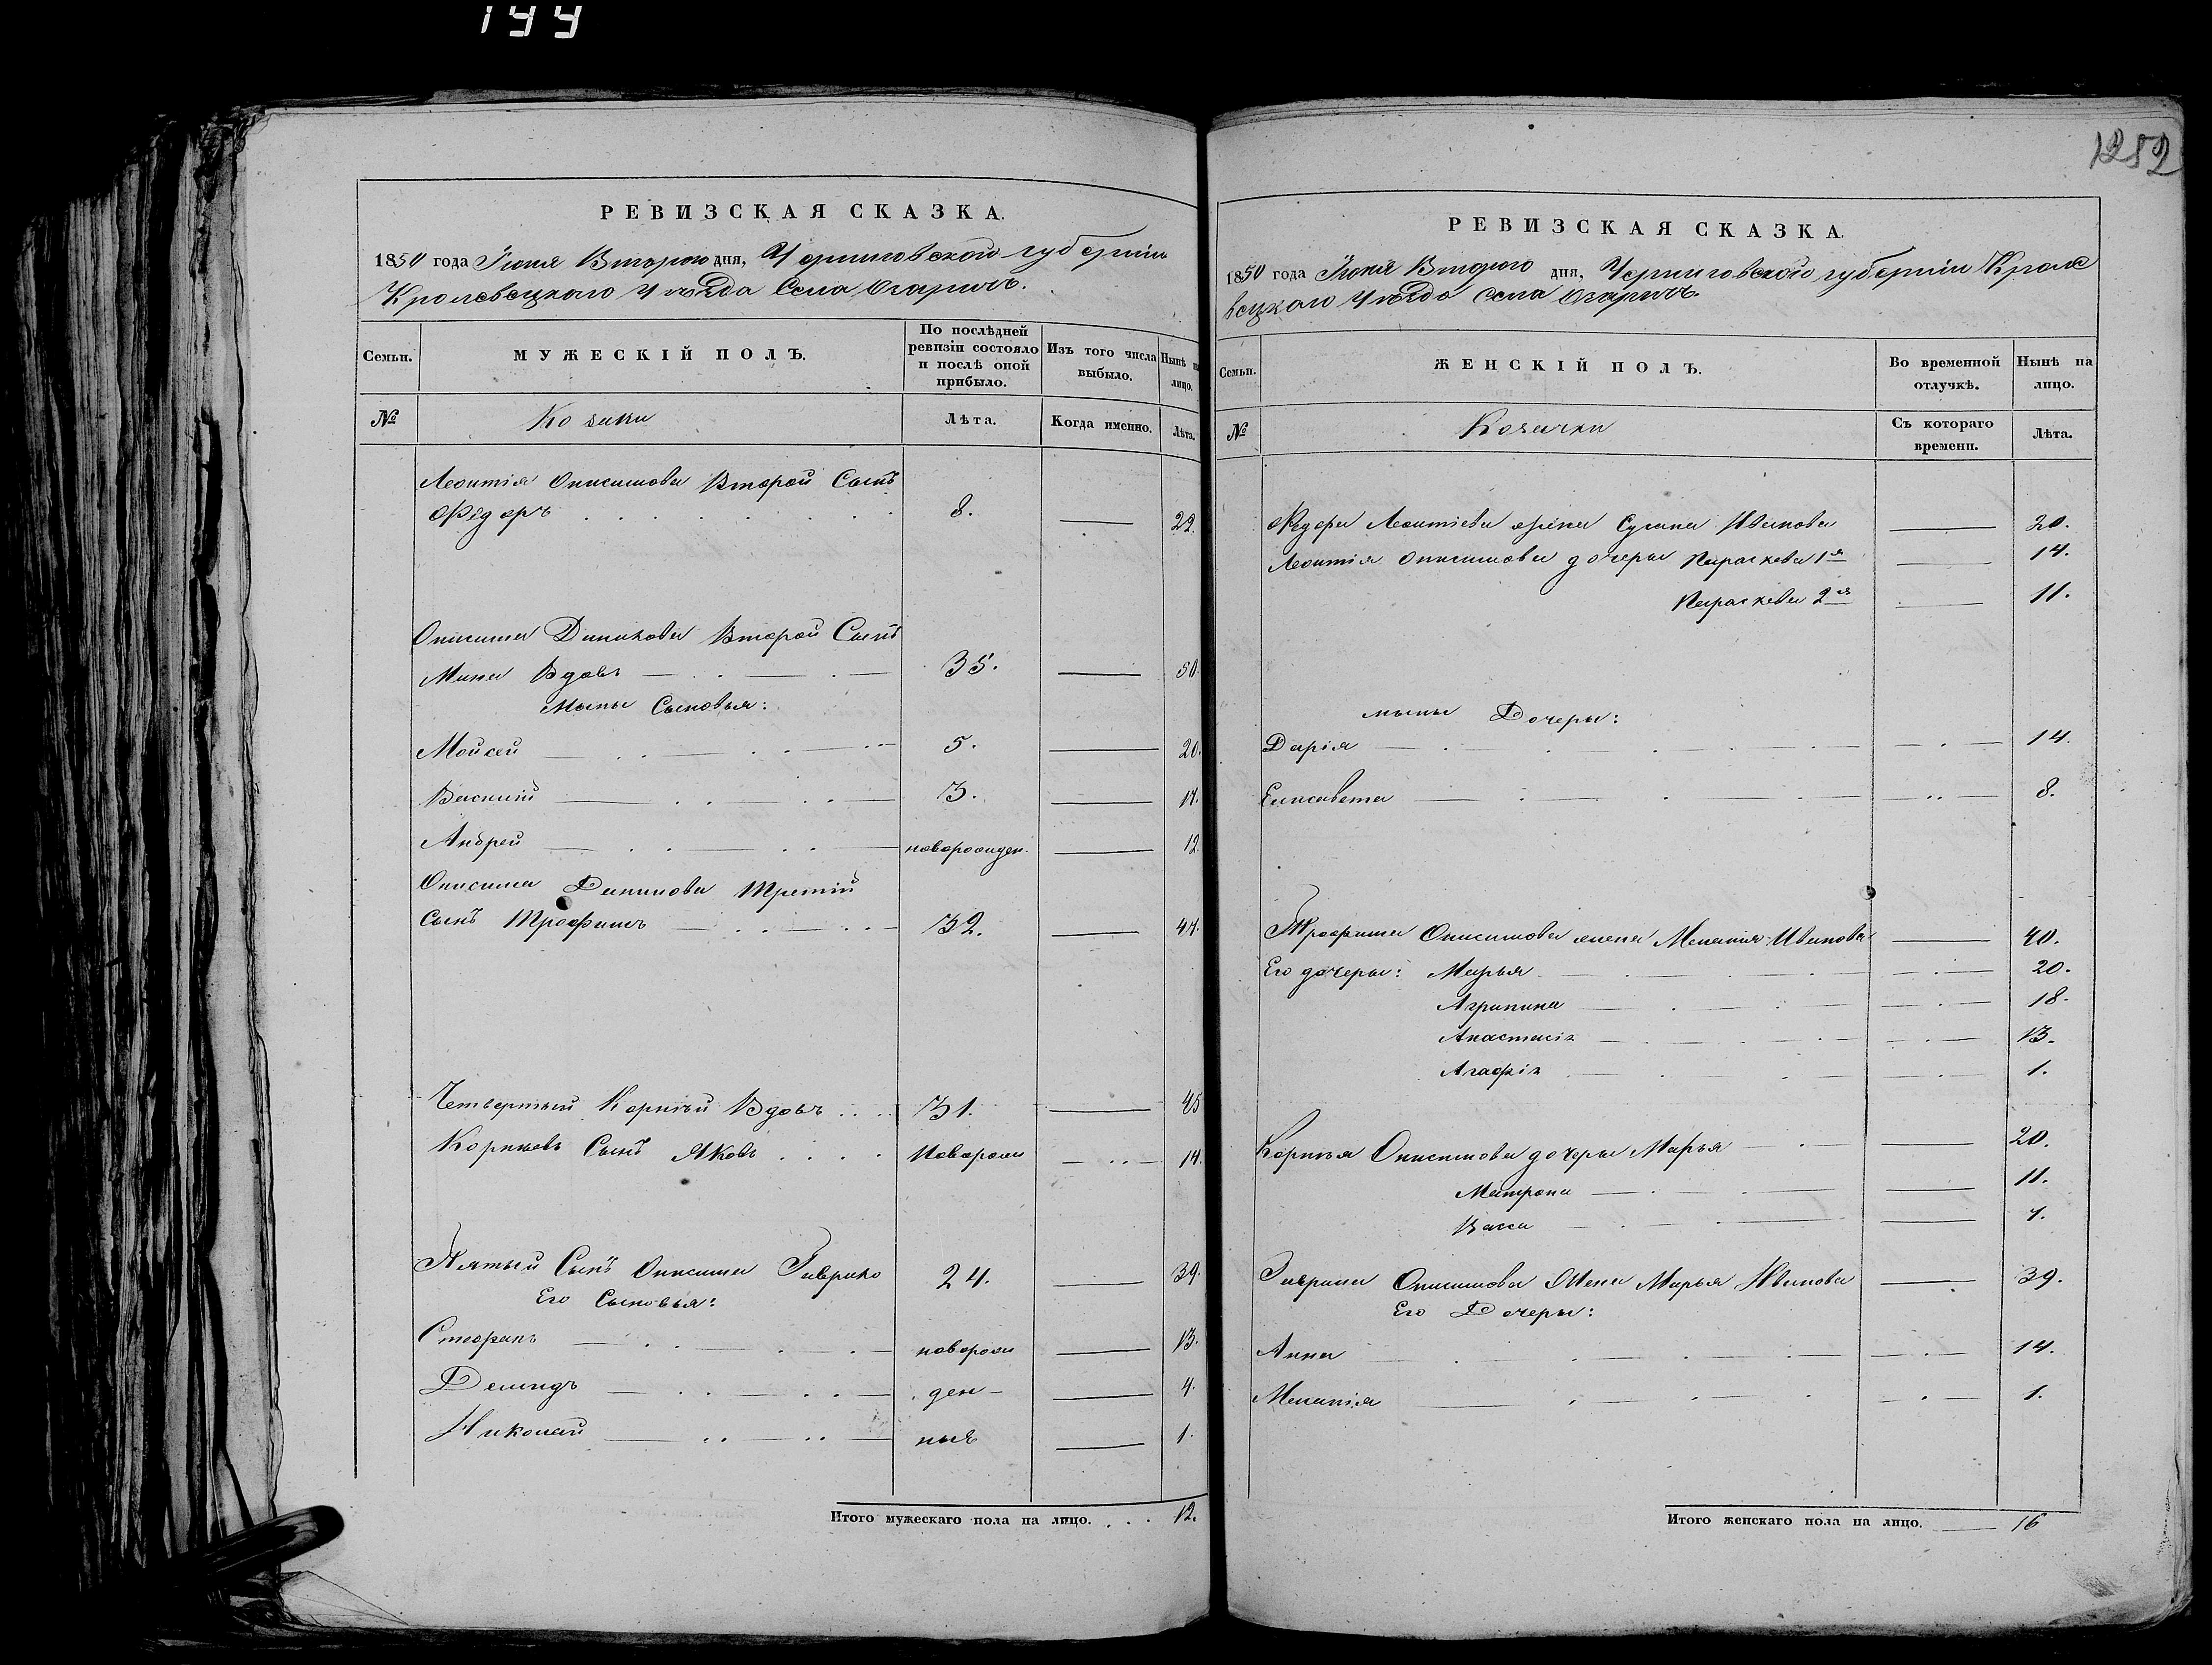 144
1252
РЕВИЗСКАЯ СКАЗКА.
1850 года Іюня Второго дня, Черниговской губерніи
Кролевецкаго Уѣзда Села Огаричъ.
Семьи.
МУЖЕСКІЙ ПОЛЪ.
По послѣдней ревизіи состояло и послѣ оной прибыло.
Изъ того числа выбыло.
Нынѣ на лицо.
№
Козаки
Лѣта.
Когда именно.
Лѣта.
Леонтія Онисимова Второй Сынъ
Ѳедоръ 8. 22.
Онисима Данилова Второй Сынъ
Мина Вдовъ 35. 50.
Мины Сыновья:
Мойсей 5. 20.
Василій 3. 17.
Андрей новорожден. 12.
Онисима Данилова Третій
Сынъ Трофимъ 32. 47.
Четвертый Корнѣй Вдовъ 31. 45
Корнѣевъ Сынъ Яковъ Новорож 14.
Пятый Сынъ Онисима Гаврило 24. 39.
Его Сыновья:
Стефанъ новорож 13.
Демидъ ден- 4.
Николай ные 1.
Итого мужескаго пола на лицо. 12.
РЕВИЗСКАЯ СКАЗКА.
1850 года Іюня Второго дня, Черниговской губерніи Кроле
вецкаго Уѣзда Села Огаричъ.
Семьи.
ЖЕНСКІЙ ПОЛЪ.
Во временной отлучкѣ.
Нынѣ на лицо.
№
Козачки
Съ котораго времени.
Лѣта.
Ѳедора Леонтіева жена Сусана Иванова 20.
Леонтія Онисимова дочеры Параскева 1я 14.
Параскева 2я 11.
Мины Дочеры:
Дарія 14.
Елисавета 8.
Трофима Онисимова жена Меланія Иванова 40.
Его дочеры: Марья 20.
Агрипина 18.
Анастасія 13.
Агафія 1.
Корнѣя Онисимова дочеры Марья 20.
Матрона 11.
Васса 7.
Гаврила Онисимова Жена Марья Иванова 39.
Его Дочеры:
Анна 14.
Меланія 1.
Итого женскаго пола на лицо. 16